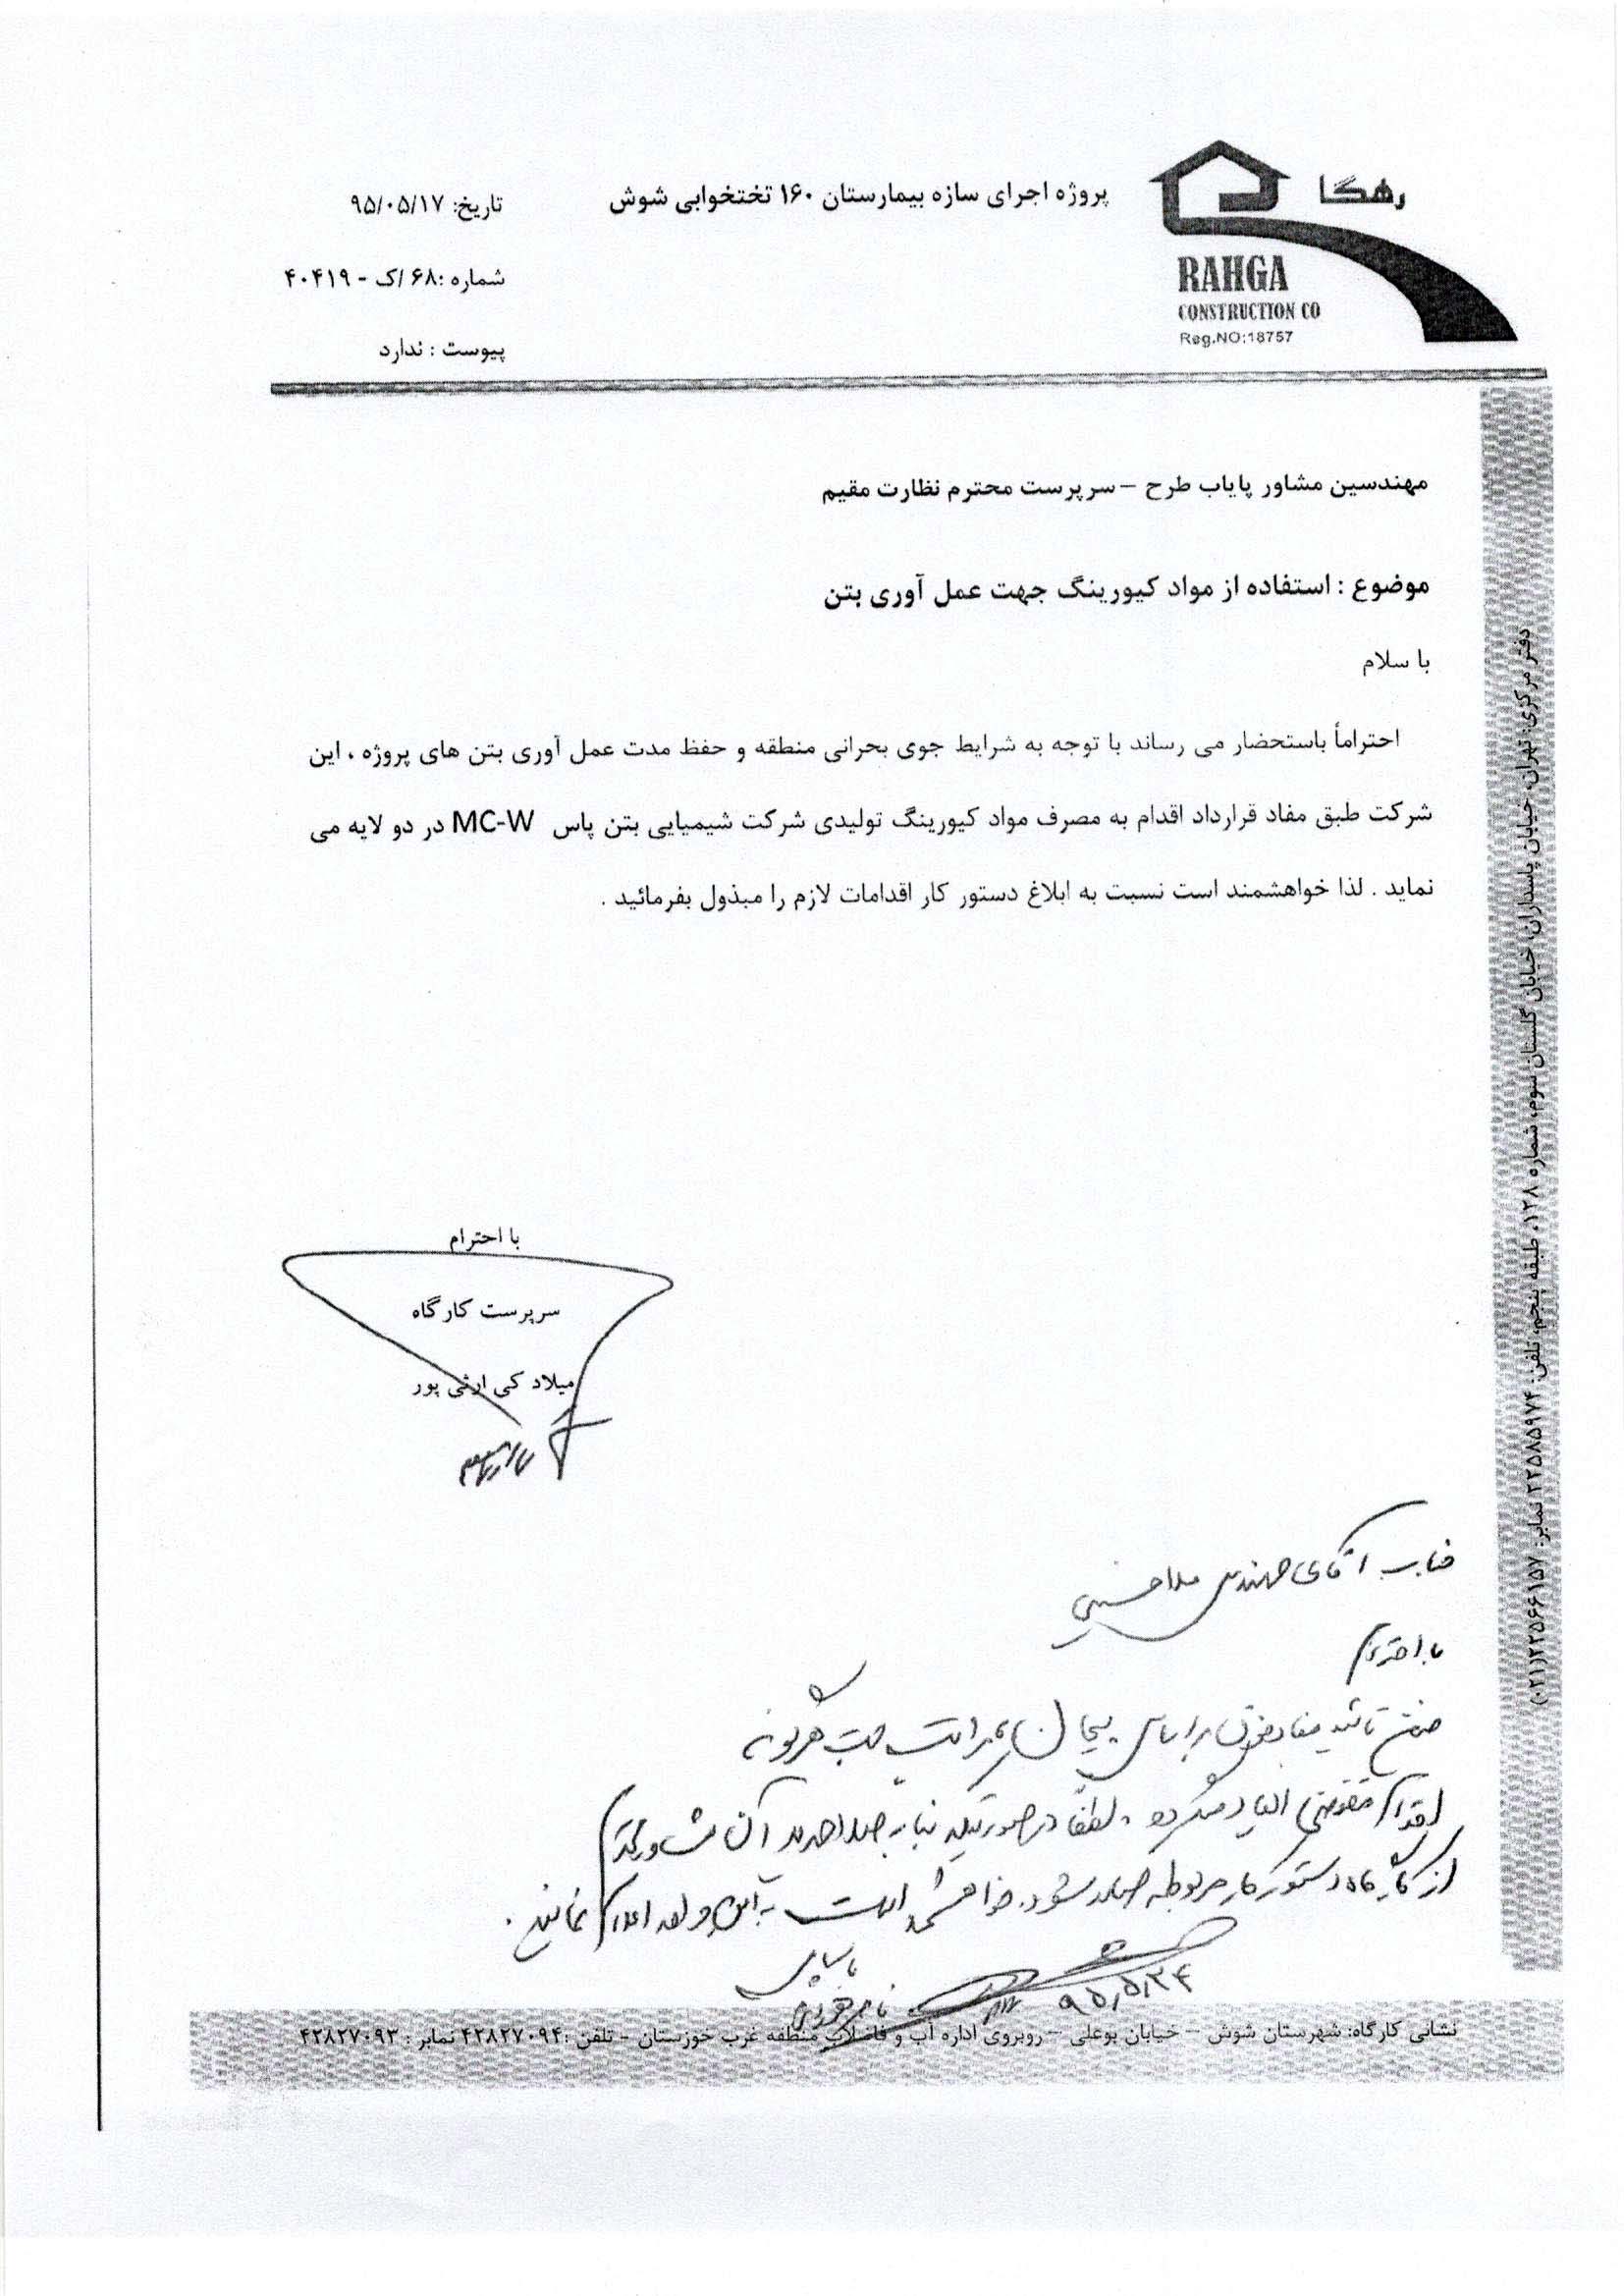 رهگا
RAHGA
CONSTRUCTION CO
Reg.NO:18757
پروژه اجرای سازه بیمارستان ۱۶۰ تختخوابی شوش
تاریخ: ۹۵/۰۵/۱۷
شماره :۶۸ /ک - ۴۰۴۱۹
پیوست : ندارد
مهندسین مشاور پایاب طرح – سرپرست محترم نظارت مقیم
موضوع : استفاده از مواد کیورینگ جهت عمل آوری بتن
با سلام
احتراماً باستحضار می رساند با توجه به شرایط جوی بحرانی منطقه و حفظ مدت عمل آوری بتن های پروژه ، این
شرکت طبق مفاد قرارداد اقدام به مصرف مواد کیورینگ تولیدی شرکت شیمیایی بتن پاس MC-W در دو لایه می
نماید . لذا خواهشمند است نسبت به ابلاغ دستور کار اقدامات لازم را مبذول بفرمائید .
با احترام
سرپرست کارگاه
میلاد کی ارثی پور
جناب آقای مهندس ملاحسینی
با احترام
ضمن تائید مفاد فوق براساس مراتب جهت هرگونه
اقدام مقتضی ایفاد میگردد . لطفاً در صورتیکه بنا به صلاحدید آن مشاور محترم
از کارگاه دستور کار مربوطه صادر شود. خواهشمند است اعلام نمائید .
با سپاس
۹۵/۵/۲۴
دفتر مرکزی: تهران، خیابان پاسداران، خیابان گلستان سوم، شماره ۱۲۸، طبقه پنجم، تلفن: ۲۲۵۸۵۹۷۴ نمابر: ۲۲۵۶۶۱۵۷(۰۲۱)
نشانی کارگاه: شهرستان شوش – خیابان بوعلی – روبروی اداره آب و فاضلاب منطقه غرب خوزستان - تلفن :۴۲۸۲۷۰۹۴ نمابر : ۴۲۸۲۷۰۹۳